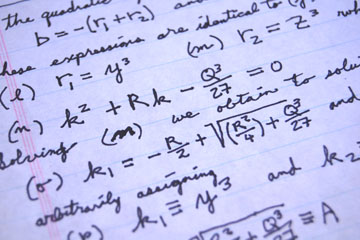 the quadratic
b = -(r₁ + r₂) and
these expressions are identical to
(l) r₁ = y³ (m) r₂ = z³
(n) k² + Rk - Q³/27 = 0
Solving (n) we obtain to
(o) k₁ = -R/2 + √((R²/4) + Q³/27) and
arbitrarily assigning
(p) k₁ ≡ y³ and k₂
≡ A